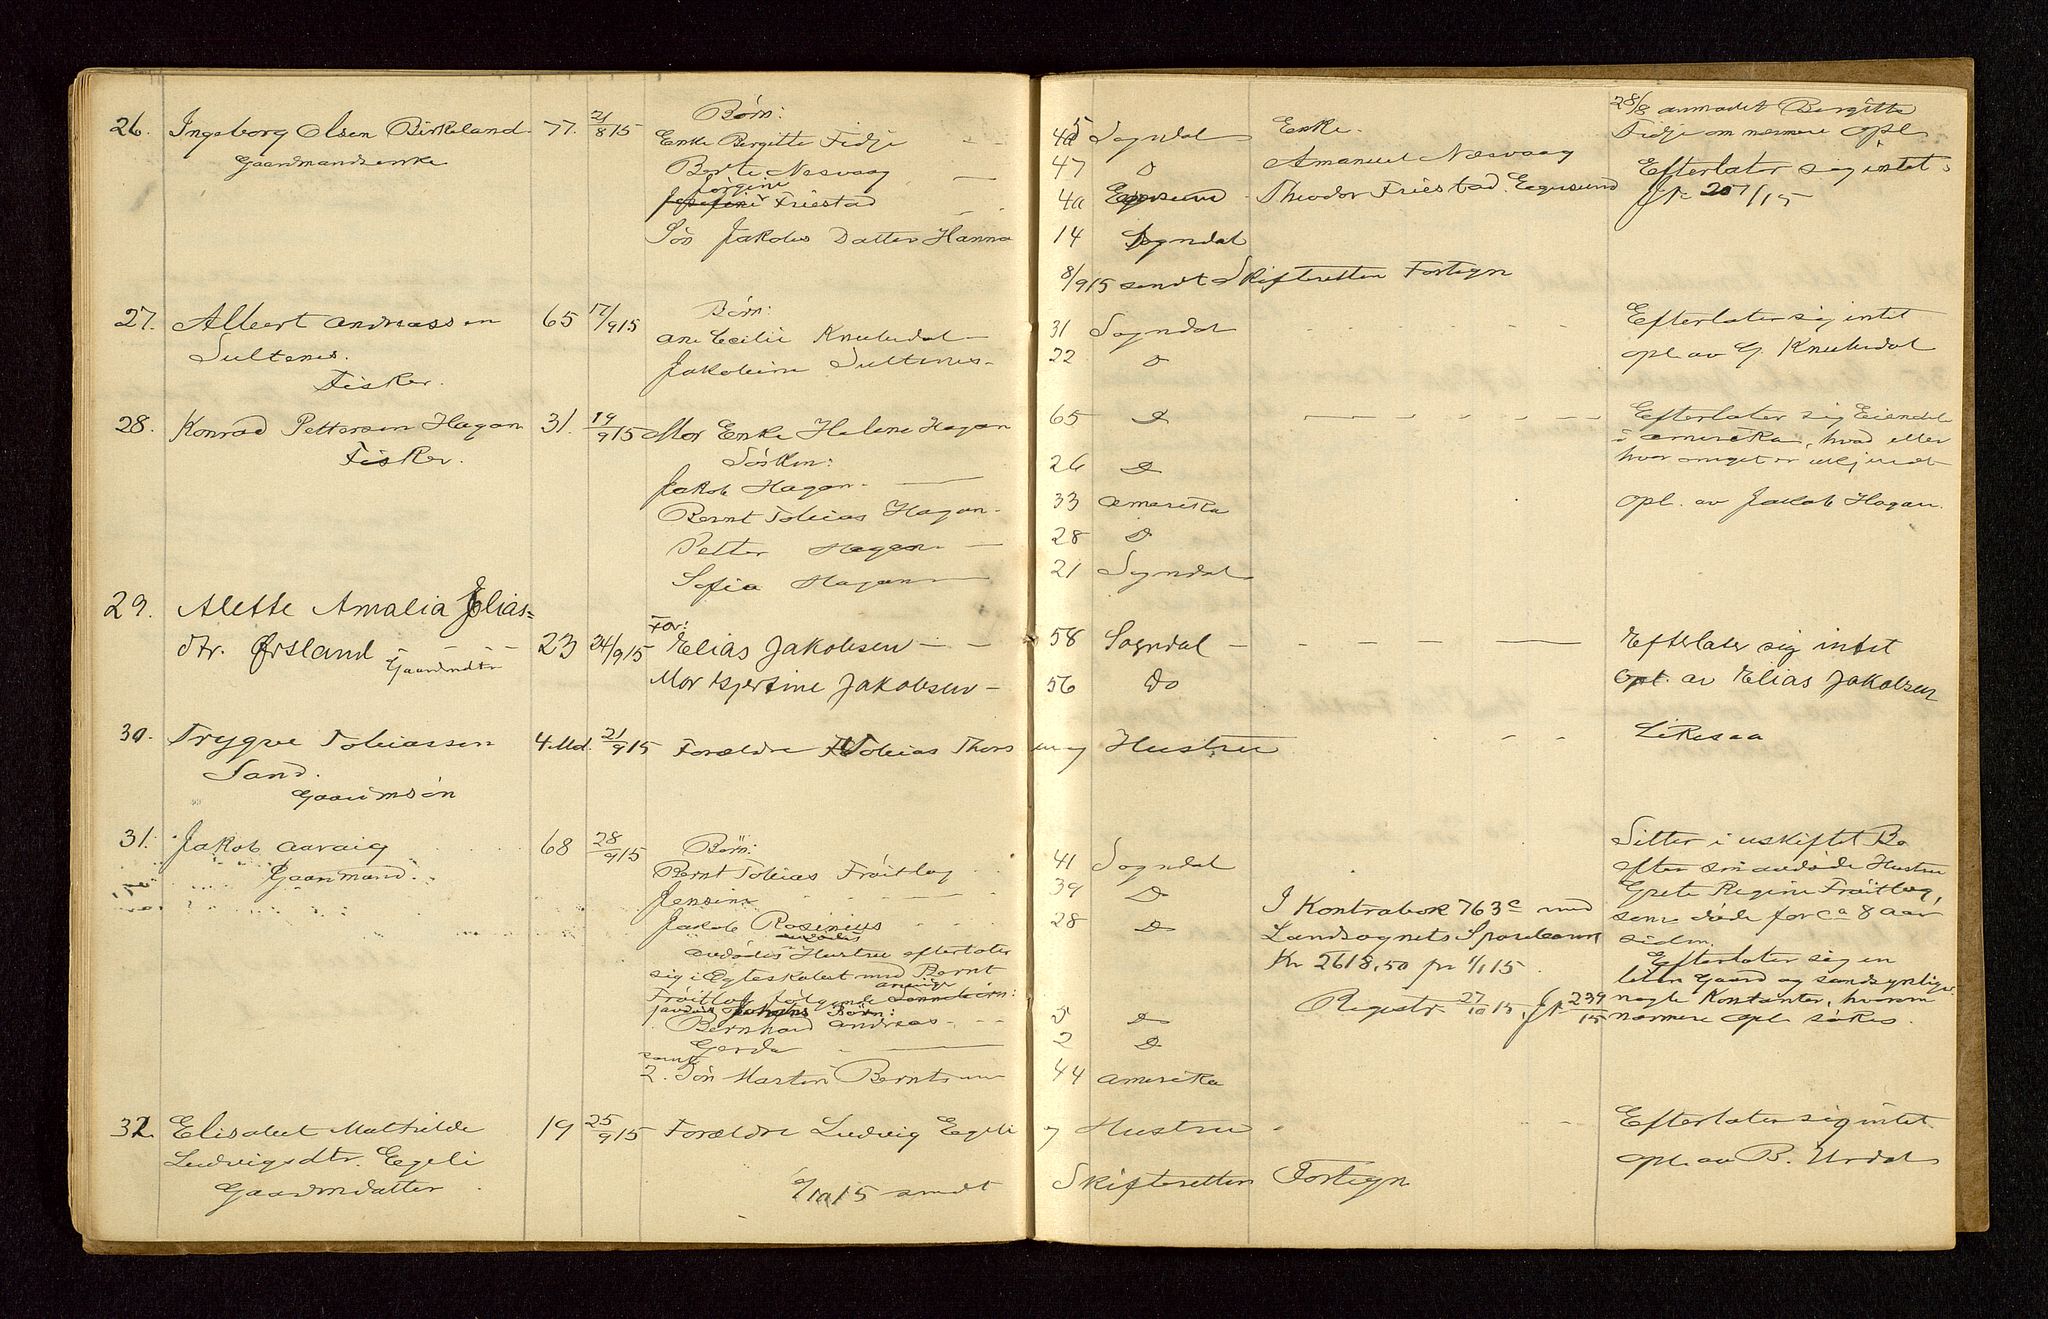 26. Ingeborg Olsen Birkeland 77. 21/8 15 Børn:
Gaardmandsenke Enke Bergitte Fidje
Berte Nesvaag
Jørgine
Friestad
Søn Jakob Datter Hanna
Sogndal Enke. 28/8 anmodet Bergitte
Fidje om nærmere opl.
47 D Amanuel Nesvaag Efterlater sig intet
40 Egersund Theodor Friestad. Egersund Jr. 207/15
14 Sogndal
8/9 15 sendt Skifteretten Fortegn
27. Albert Andreassen 65 17/9 15 Børn:
Sultenes. Ane Cecilie Knubedal
Fisker. Jakobine Sultenes
31 Sogndal Efterlater sig intet
22 D opl. av G. Knubedal
28. Konrad Pettersen Hagan 31. 19/9 15 Mor Enke Helene Hagan
Fisker. Søsken:
Jakob Hagan
Bernt Tobias Hagan
Petter Hagan
Sofia Hagan
65 D Efterlater sig Eiendel
i Amerika, hvad eller
26 D hvor meget er ukjendt
33 Amerika opl. av Jakob Hagan.
28 D
21 Sogndal
29. Alette Amalia Elias=
dtr. Ørsland Gaardmdtr 23 24/9 15 Far: Elias Jakobsen
Mor Kjertine Jakobsen
58 Sogndal Efterlater sig intet
56 Do Opl. av Elias Jakobsen
30. Trygve Tobiassen 4. Md. 21/9 15 Forældre Tobias Thorsen og Hustru Likesaa
Sand.
Gaardmsøn
31. Jakob Aavaig 68 28/9 15 Børn:
Gaardmand. Bernt Tobias Frøitlog
Jensine
Jakob Rosinius
avdødes Hustru efterlater
sig i Egteskabet med Bernt
Frøitlog følgende
Børn:
Bernhard Andreas
Gerda
samt
2. Søn Martin Berntsen
41 Sogndal Sitter i uskiftet Bo
39 D efter sin avdøde Hustru
28 D I Kontrabok 763c med Grete Regine Frøitlog,
Landsognets Sparebank som døde for ca 8 aar
Kr 2618,50 pr 1/1 15. siden.
Efterlater sig en
liten Gaard og sandsynligvis
Registr 27/10 15, Jr 239/15 nogle Kontanter, hvorom
5 D nærmere opl. søkes.
2 D
44 Amerika
32. Elisabet Mathilde 19 25/9 15 Forældre Ludvig Egeli og Hustru Efterlater sig intet
Ludvigsdtr. Egeli opl. av B. Urdal
Gaardmdatter 6/10 15 sendt Skifteretten Fortegn